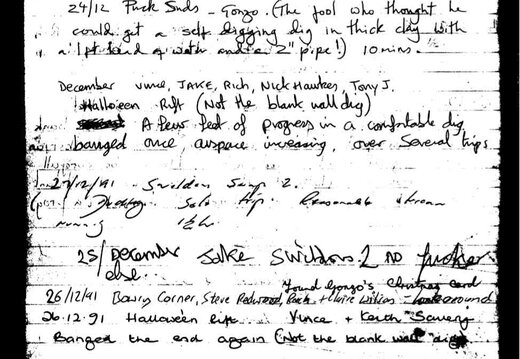 24/12 Puck Suds - Gonzo. (The fool who thought he
could get a self digging dig in thick clay with
a 1pt head of water and a 2" pipe!) 10mins.
December Vince, JAKE, Rich, Nick Hawkes, Tony J.
Halloween Rift (Not the blank wall dig)
A few feet of progress in a comfortable dig
banged once, airspace increasing, over several trips
27/12/91 - Swildons Sump 2.
Solo trip. Reasonable stream
1½ hr
25/December Jake Swildons 2 no further
else... found Gonzo's card
26/12/91 Corner, Steve Redwood, + Claire - look around
26.12.91 Halloween Rift. Vince +
Banged the end again (Not the blank wall dig)